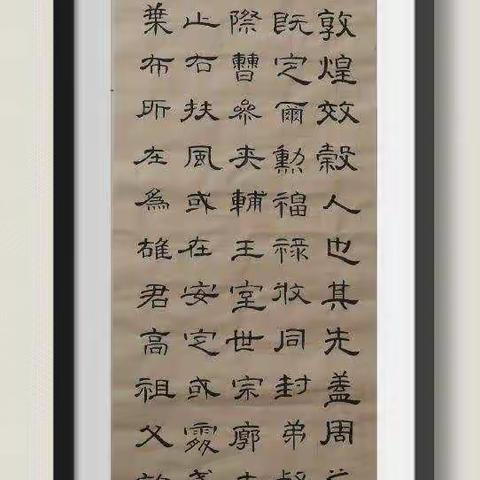 敦煌效穀人也其先蓋周
既定爾勳福祿攸同封弟
際曹參夾輔王室世宗廓
止右扶風或在安定或處
葉布所在為雄君高祖父